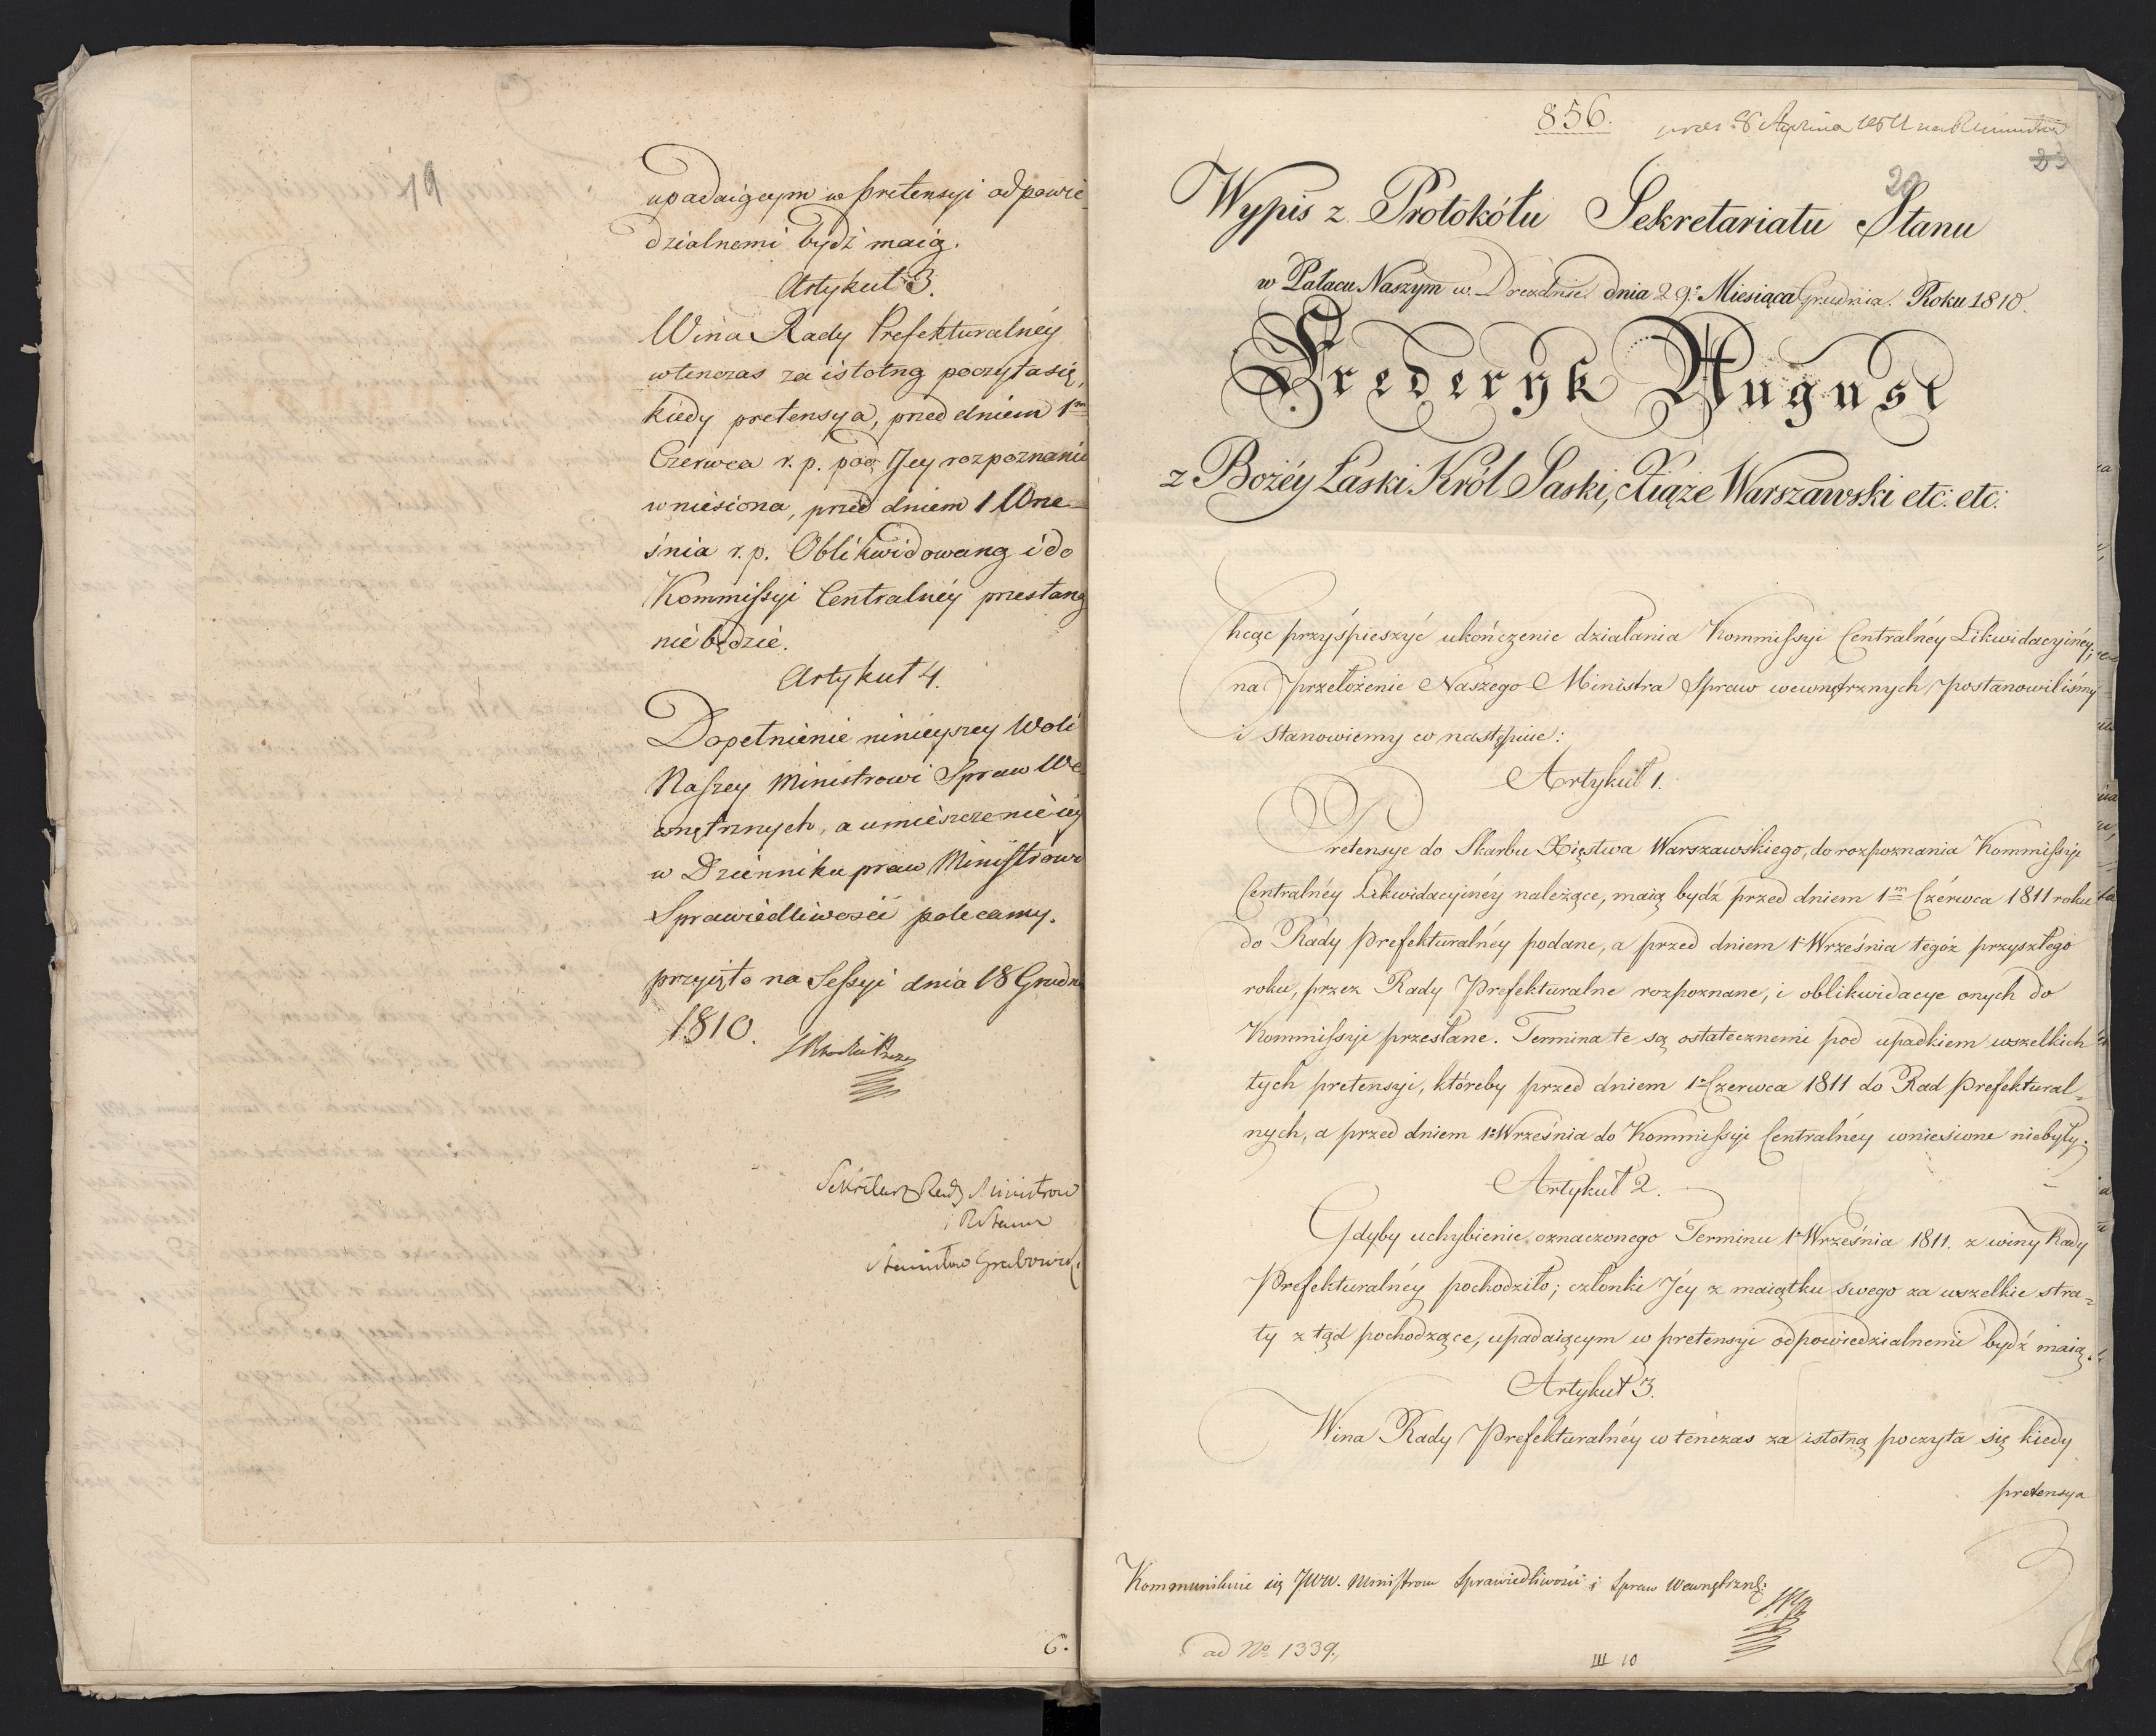 19
upadaiącym w pretensyi odpowie
dzialnemi bydź maią.
Artykuł 3.
Wina Rady Prefekturalnéy
wtenczas za istotną poczyta się,
kiedy pretensya, przed dniem 1m
Czerwca r. p. pod Jey rozpoznanie
wniesiona, przed dniem 1 Wrze-
śnia r. p. Oblikwidowaną i do
Kommissyi Centralnéy przesłaną
nie będzie.
Artykuł 4.
Dopełnienie ninieyszey Woli
Naszey Ministrowi Spraw We
wnętrznych, a umieszczenie iey
w Dzienniku praw Ministrowi
Sprawiedliwości polecamy.
przyięto na Sessyi dnia 18 Grudn
1810.
Sekretarz Rady Ministrow
i R Stanu
Stanisław Grabowski
6.
856.
20
Wypis z Protokółu Sekretariatu Stanu
w Pałacu Naszym w Dreznie dnia 29. Miesiąca Grudnia. Roku 1810.
Frederyk August
z Bożéy Łaski Król Saski, Xiąże Warszawski etc: etc:
Chcąc przyśpieszyć ukończenie działania Kommissyi Centralnéy Likwidacyinéy,
na przełożenie Naszego Ministra Spraw wewnętrznych, postanowiliśmy
i stanowiemy co następuie:
Artykuł 1.
Pretensye do Skarbu Xięstwa Warszawskiego, do rozpoznania Kommissyi
Centralnéy Likwidacyinéy należące, maią bydź przed dniem 1m Czérwca 1811 roku
do Rady Prefekturalnéy podane, a przed dniem 1 Września tegóż przyszłego
roku, przez Rady Prefekturalne rozpoznane, i oblikwidacye onych do
Kommissyi przesłane. Termina te są ostatecznemi pod upadkiem wszelkich
tych pretensyi, któreby przed dniem 1 Czerwca 1811 do Rad Prefektural=
nych, a przed dniem 1 Września do Kommissyi Centralnéy wniesione niebyły.
Artykuł 2.
Gdyby uchybienie oznaczonego Terminu 1 Września 1811. z winy Rady
Prefekturalnéy pochodziło; członki Jéy z maiątku swego za wszelkie stra=
ty z tąd pochodzące, upadaiącym w pretensyi odpowiedzialnemi bydź maią.
Artykuł 3.
Wina Rady Prefekturalnéy wtenczas za istotną poczyta się kiedy
pretensya
Kommunikuie się JWW. Ministrom Sprawiedliwości i Spraw Wewnętrzn:
ad No 1339.
III 10